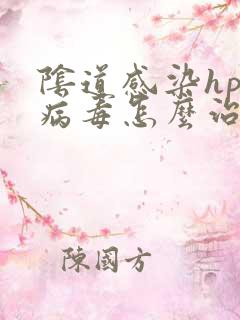 陰道感染hp
病毒怎麼治
陳國方